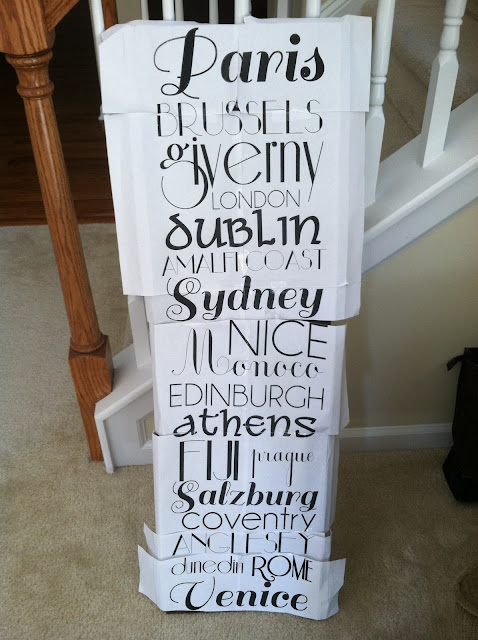 Paris
BRUSSELS
giverny
LONDON
DUBLIN
AMALFI COAST
Sydney
NICE
Monoco
EDINBURGH
athens
FIJI prague
Salzburg
coventry
ANGLESEY
dunedin ROME
Venice